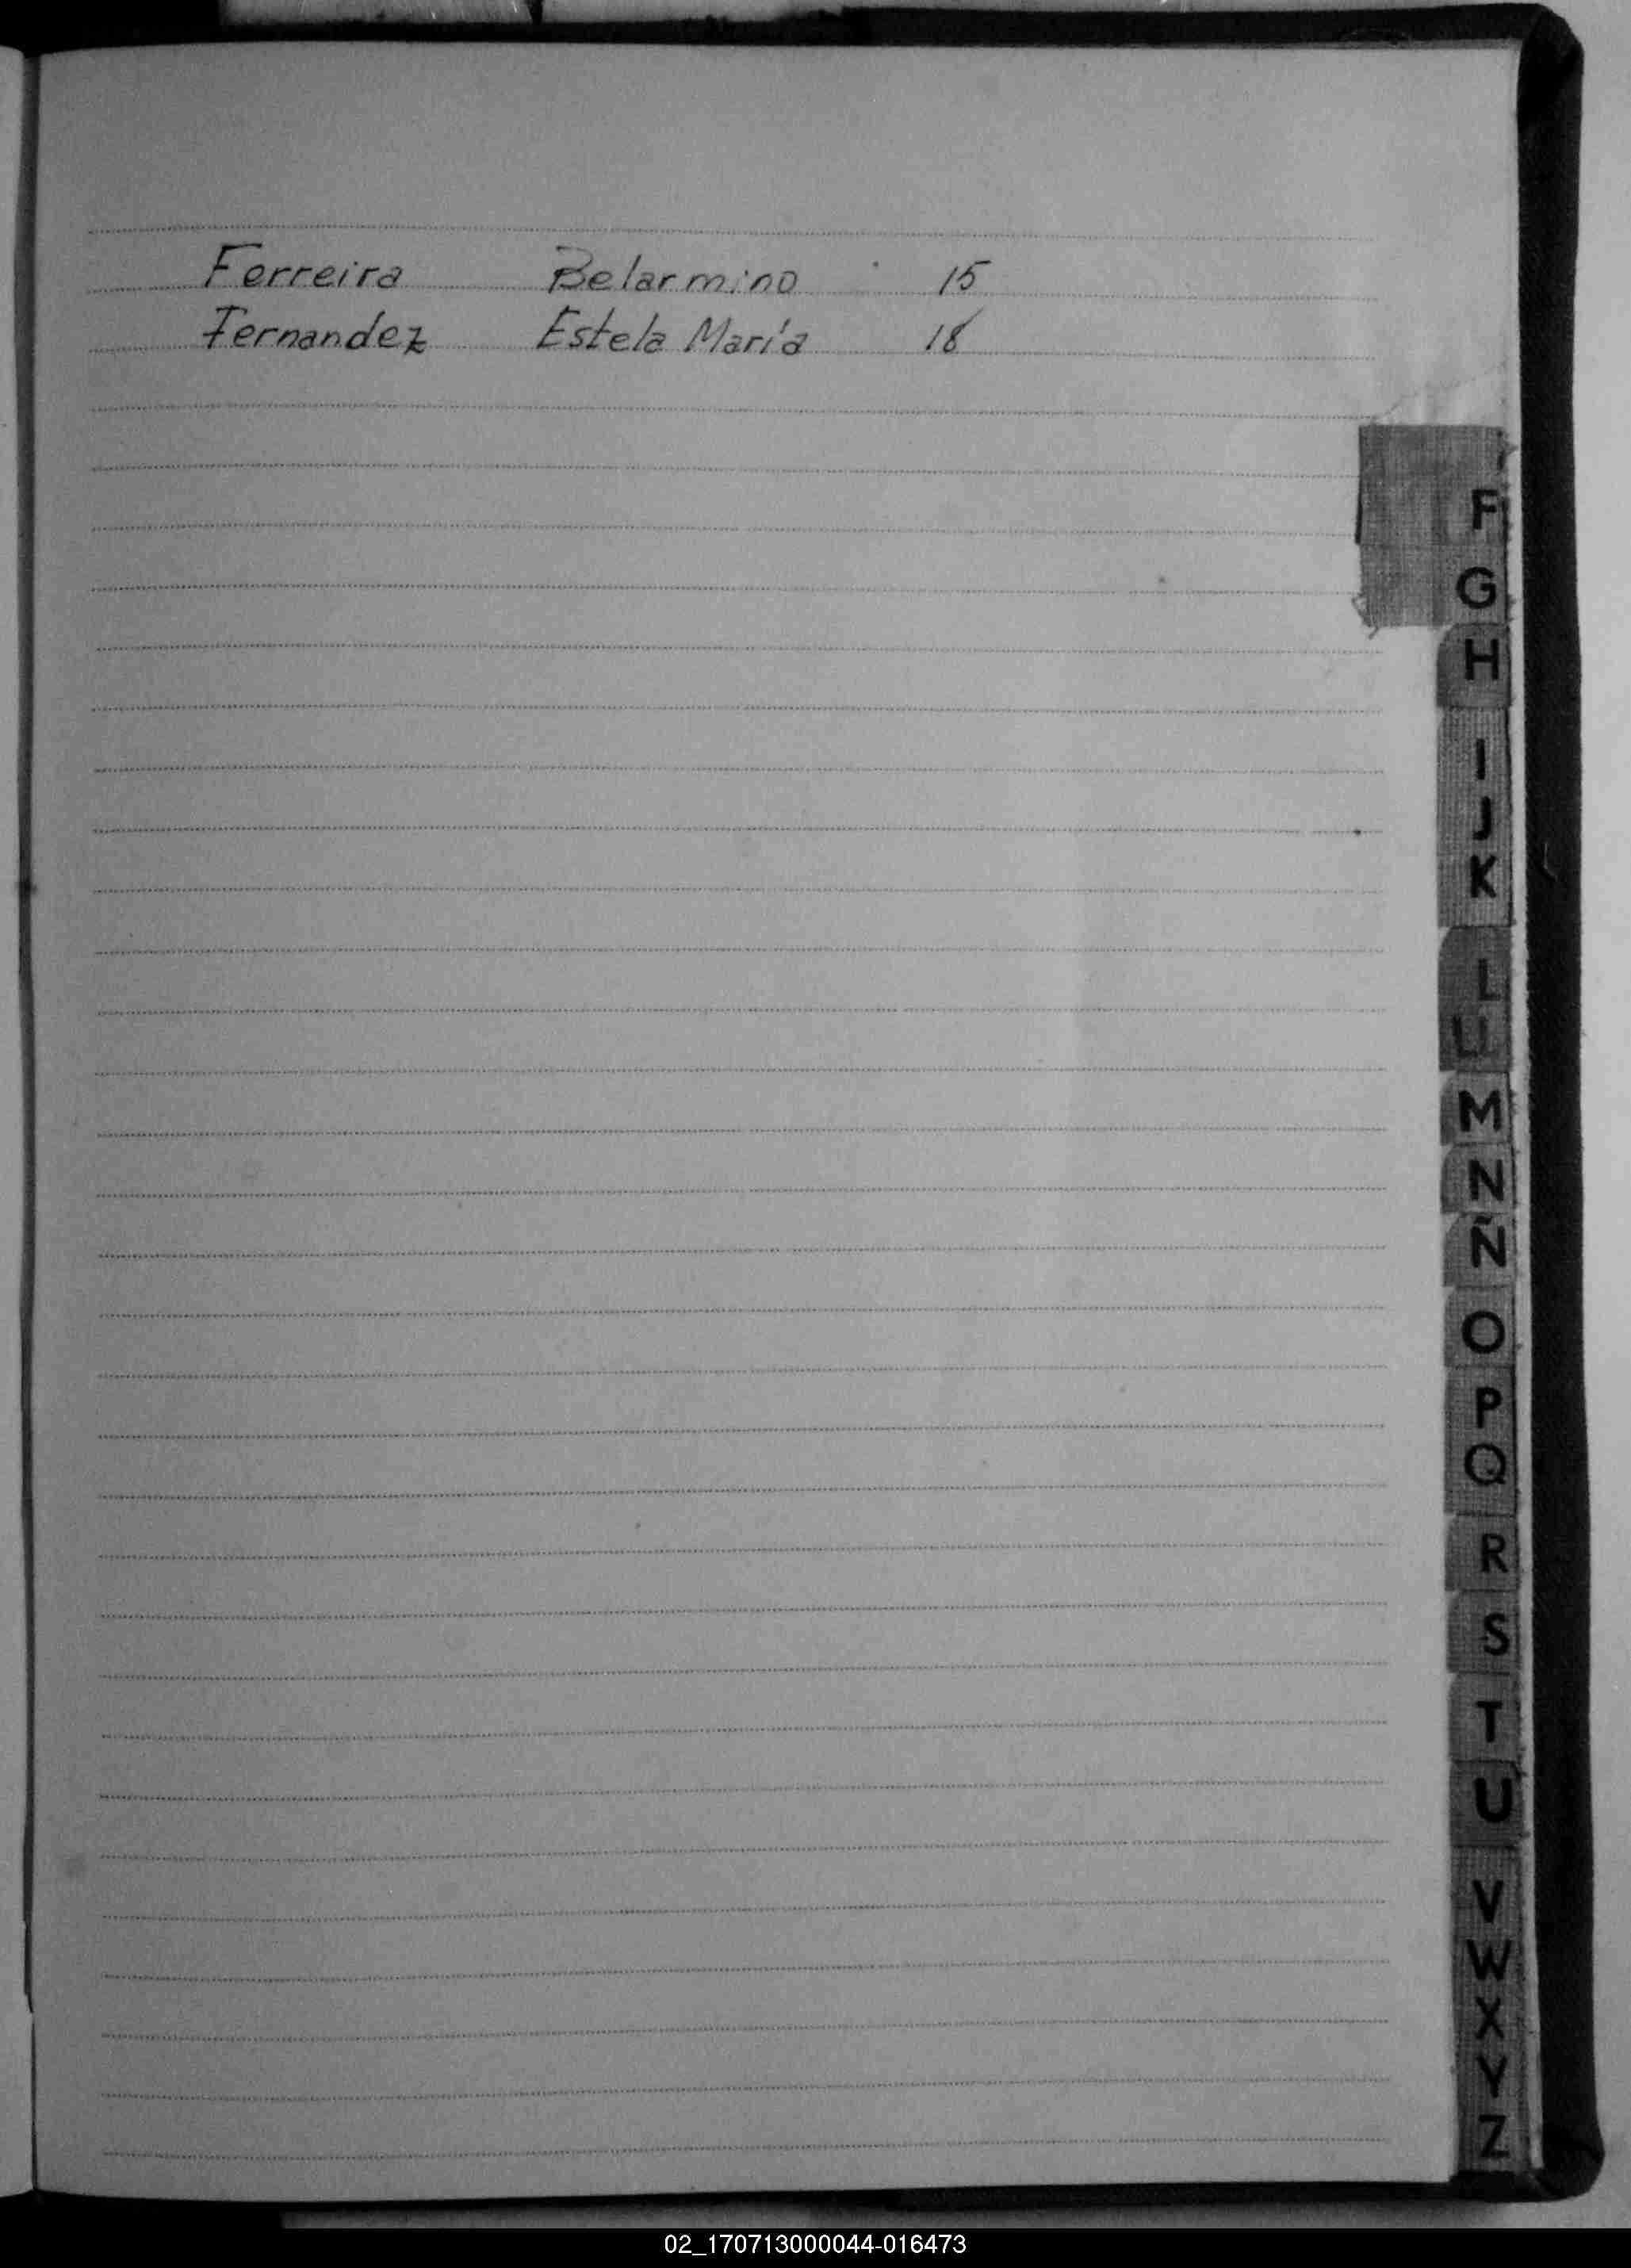 Ferreira Belarmino 15
Fernandez Estela María 18
F
G
H
I
J
K
L
M
N
Ñ
O
P
Q
R
S
T
U
V
W
X
Y
Z
02_170713000044-016473